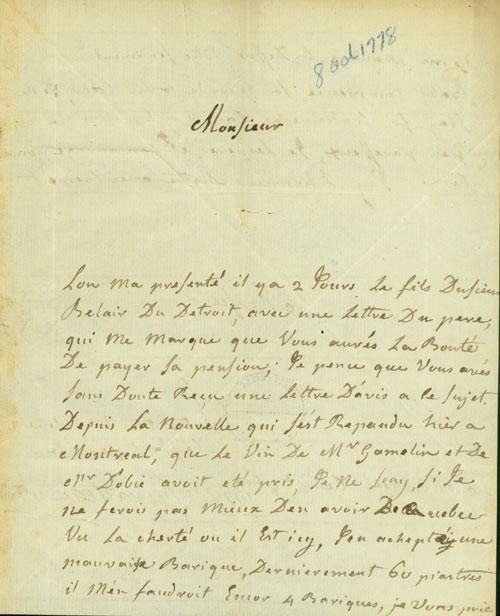 8 oct 1778
Monsieur
Lon ma presenté il ya 2 Jours Le fils Du sieur
Belair Du Detroit, avec une Lettre Du pere,
qui Me Marque que Vous aurés La Bonté
De payer sa pension; Je pence que Vous avés
sans Doute Recu une Lettre D'avis a ce Sujet.
Depuis La Nouvelle qui s'est Repandu hier a
Montreal, que Le Vin De Mr Gamelin et De
Mr D'obié avoit eté pris, Je Ne scay, si Je
ne ferois pas Mieux Den avoir De Quebec
Vu La cherté ou il Est icy, J'en acheptéy une
mauvaise Barique, Dernierement 60 piastres
il M'en faudroit Encor 4 Bariques, je Vous prie